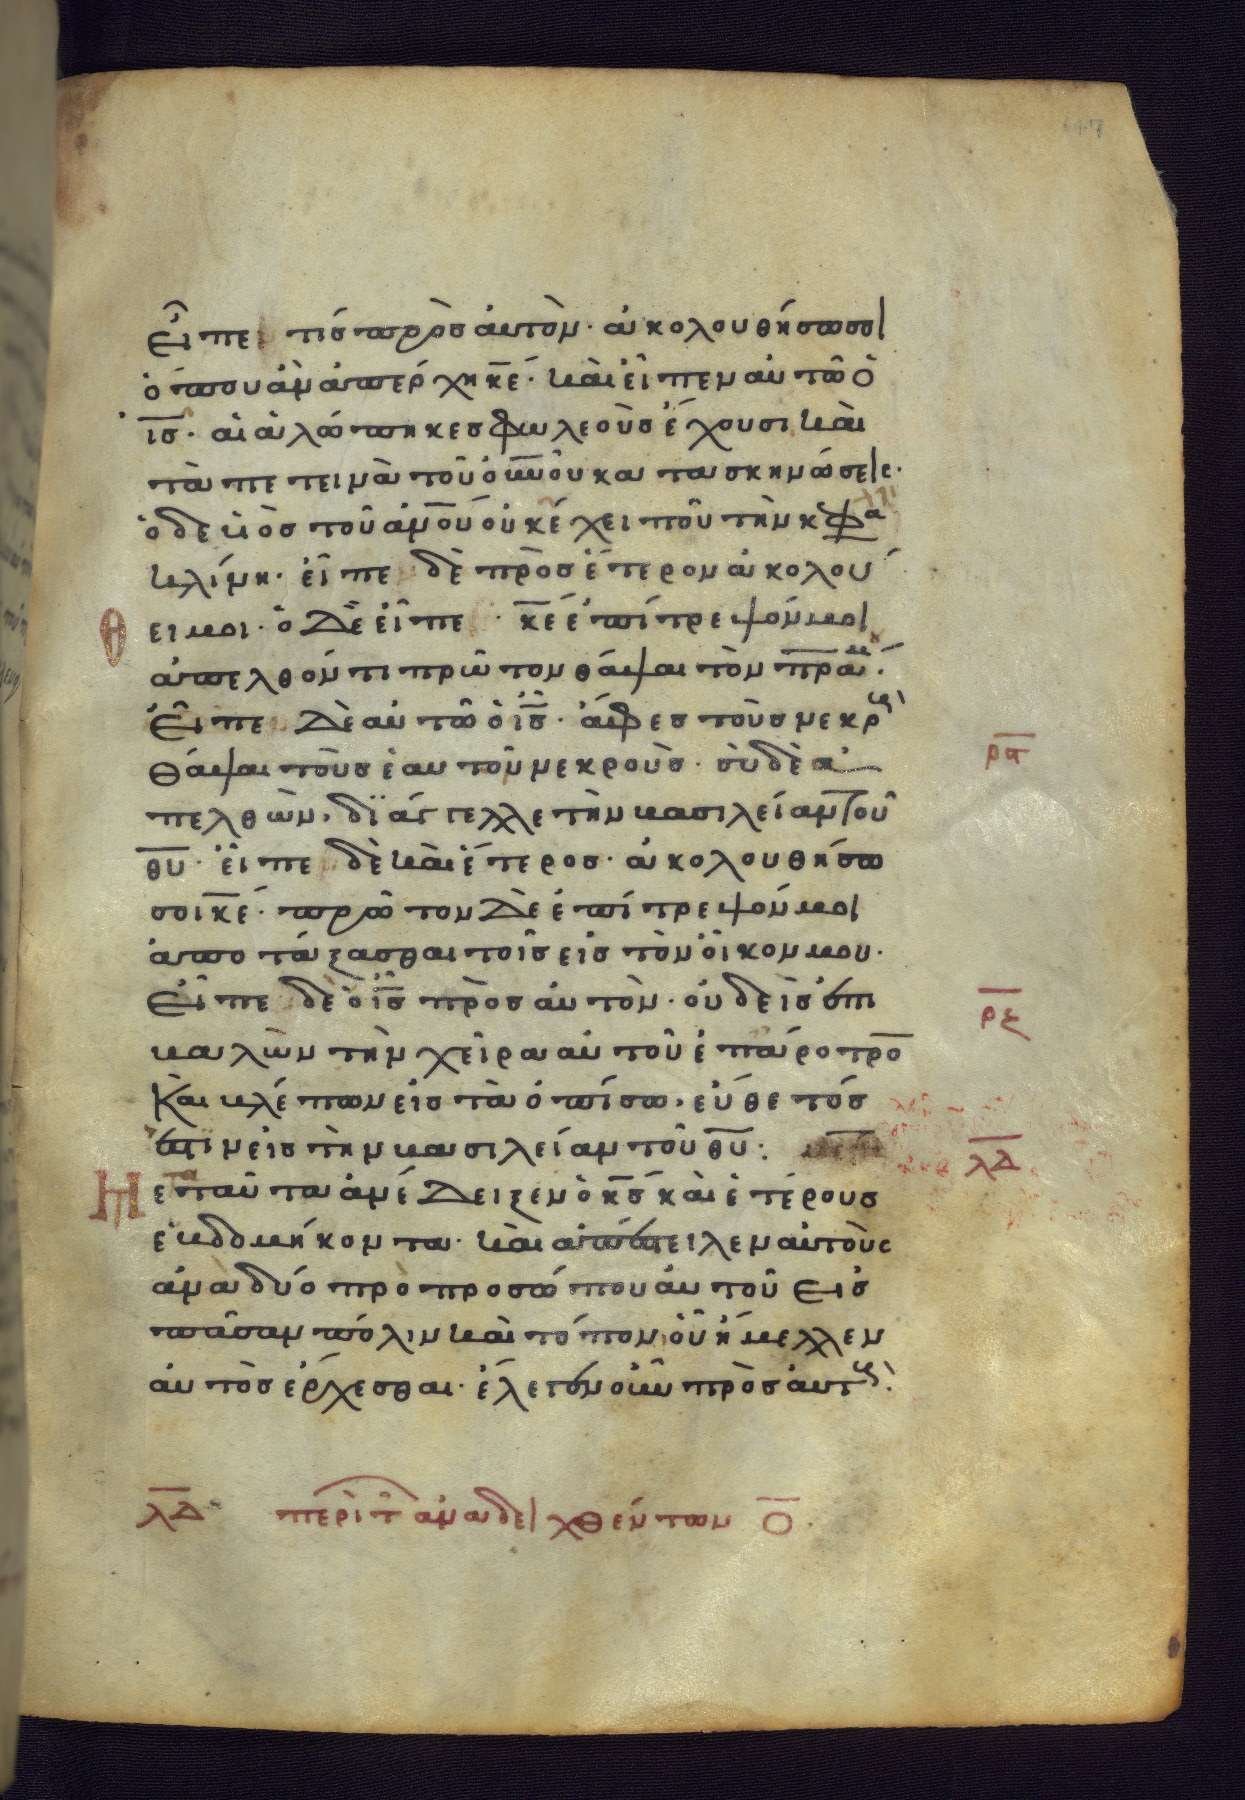 εἶπε τίς πρὸς αὐτὸν· ἀκολουθήσω σοι
ὅπου ἂν ἀπέρχη κε̅· καὶ εἶπεν αὐτῶ ὁ
ις̅· αἱ ἀλώπηκες φωλεοὺς ἔχουσι καὶ
τὰ πετεινὰ τοῦ ουνου κατασκηνώσεις·
ὁ δὲ υἱὸς τοῦ ανου οὐκ ἔχει ποῦ τὴν κεφα
κλίνη· εἶπε δὲ πρὸς ἕτερον ἀκολού
θει μοι· ὁ δὲ εἶπε· κε̅ ἐπίτρεψόν μοι
ἀπελθόντι πρῶτον θάψαι τὸν πρα̅μ·
εἶπε δὲ αὐτῶ ὁ ις̅· ἄφες τοὺς νεκρ
θάψαι τοὺς ἑαυτοῦ νεκροὺς· σὺ δὲ ἀ
πελθὼν, διάγγελλε τὴν βασιλείαν τοῦ
θυ̅· εἶπε δὲ καὶ ἕτερος· ἀκολουθήσω
σοι κε̅· πρῶτον δὲ ἐπίτρεψόν μοι
ἀποτάξασθαι τοῖς εἰς τὸν οἶκον μου·
εἶπε δὲ ὁ ις̅ πρὸς αὐτὸν· οὐδεὶς ἐπι
βαλὼν τὴν χεῖρα αὐτοῦ ἐπ' ἄροτρο
καὶ βλέπων εἰς τὰ ὀπίσω, εὔθετός
ἐστιν εἰς τὴν βασιλείαν τοῦ θυ̅:
Μετὰ ταῦτα ἀνέδειξεν ὁ κς̅ καὶ ἑτέρους
ἑβδομήκοντα· καὶ ἀπέστειλεν αὐτοὺς
ἀνὰ δύο πρὸ προσώπου αὐτοῦ εἰς
πᾶσαν πόλιν καὶ τόπον, οὗ ἤμελλεν
αὐτὸς ἔρχεσθαι· ἔλεγεν οὖν πρὸς αὐτ
ρξ̅
λδ̅
λδ̅ περὶ τ ἀναδειχθέντων ο̅·